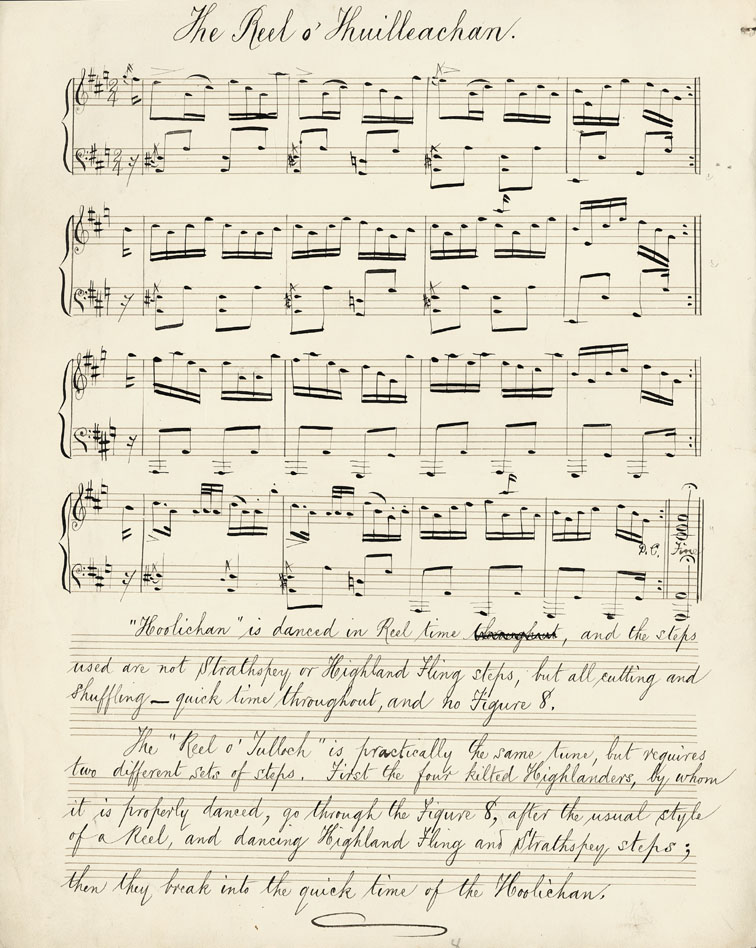 The Reel o' Thuilleachan.
D.C. Fine
"Hoolichan" is danced in Reel time throughout, and the steps
used are not Strathspey or Highland Fling steps, but all cutting and
Shuffling — quick time throughout, and no Figure 8.
The "Reel o' Tulloch" is practically the same tune, but requires
two different sets of steps. First the four kilted Highlanders, by whom
it is properly danced, go through the Figure 8, after the usual style
of a Reel, and dancing Highland Fling and Strathspey steps;
then they break into the quick time of the Hoolichan.
4